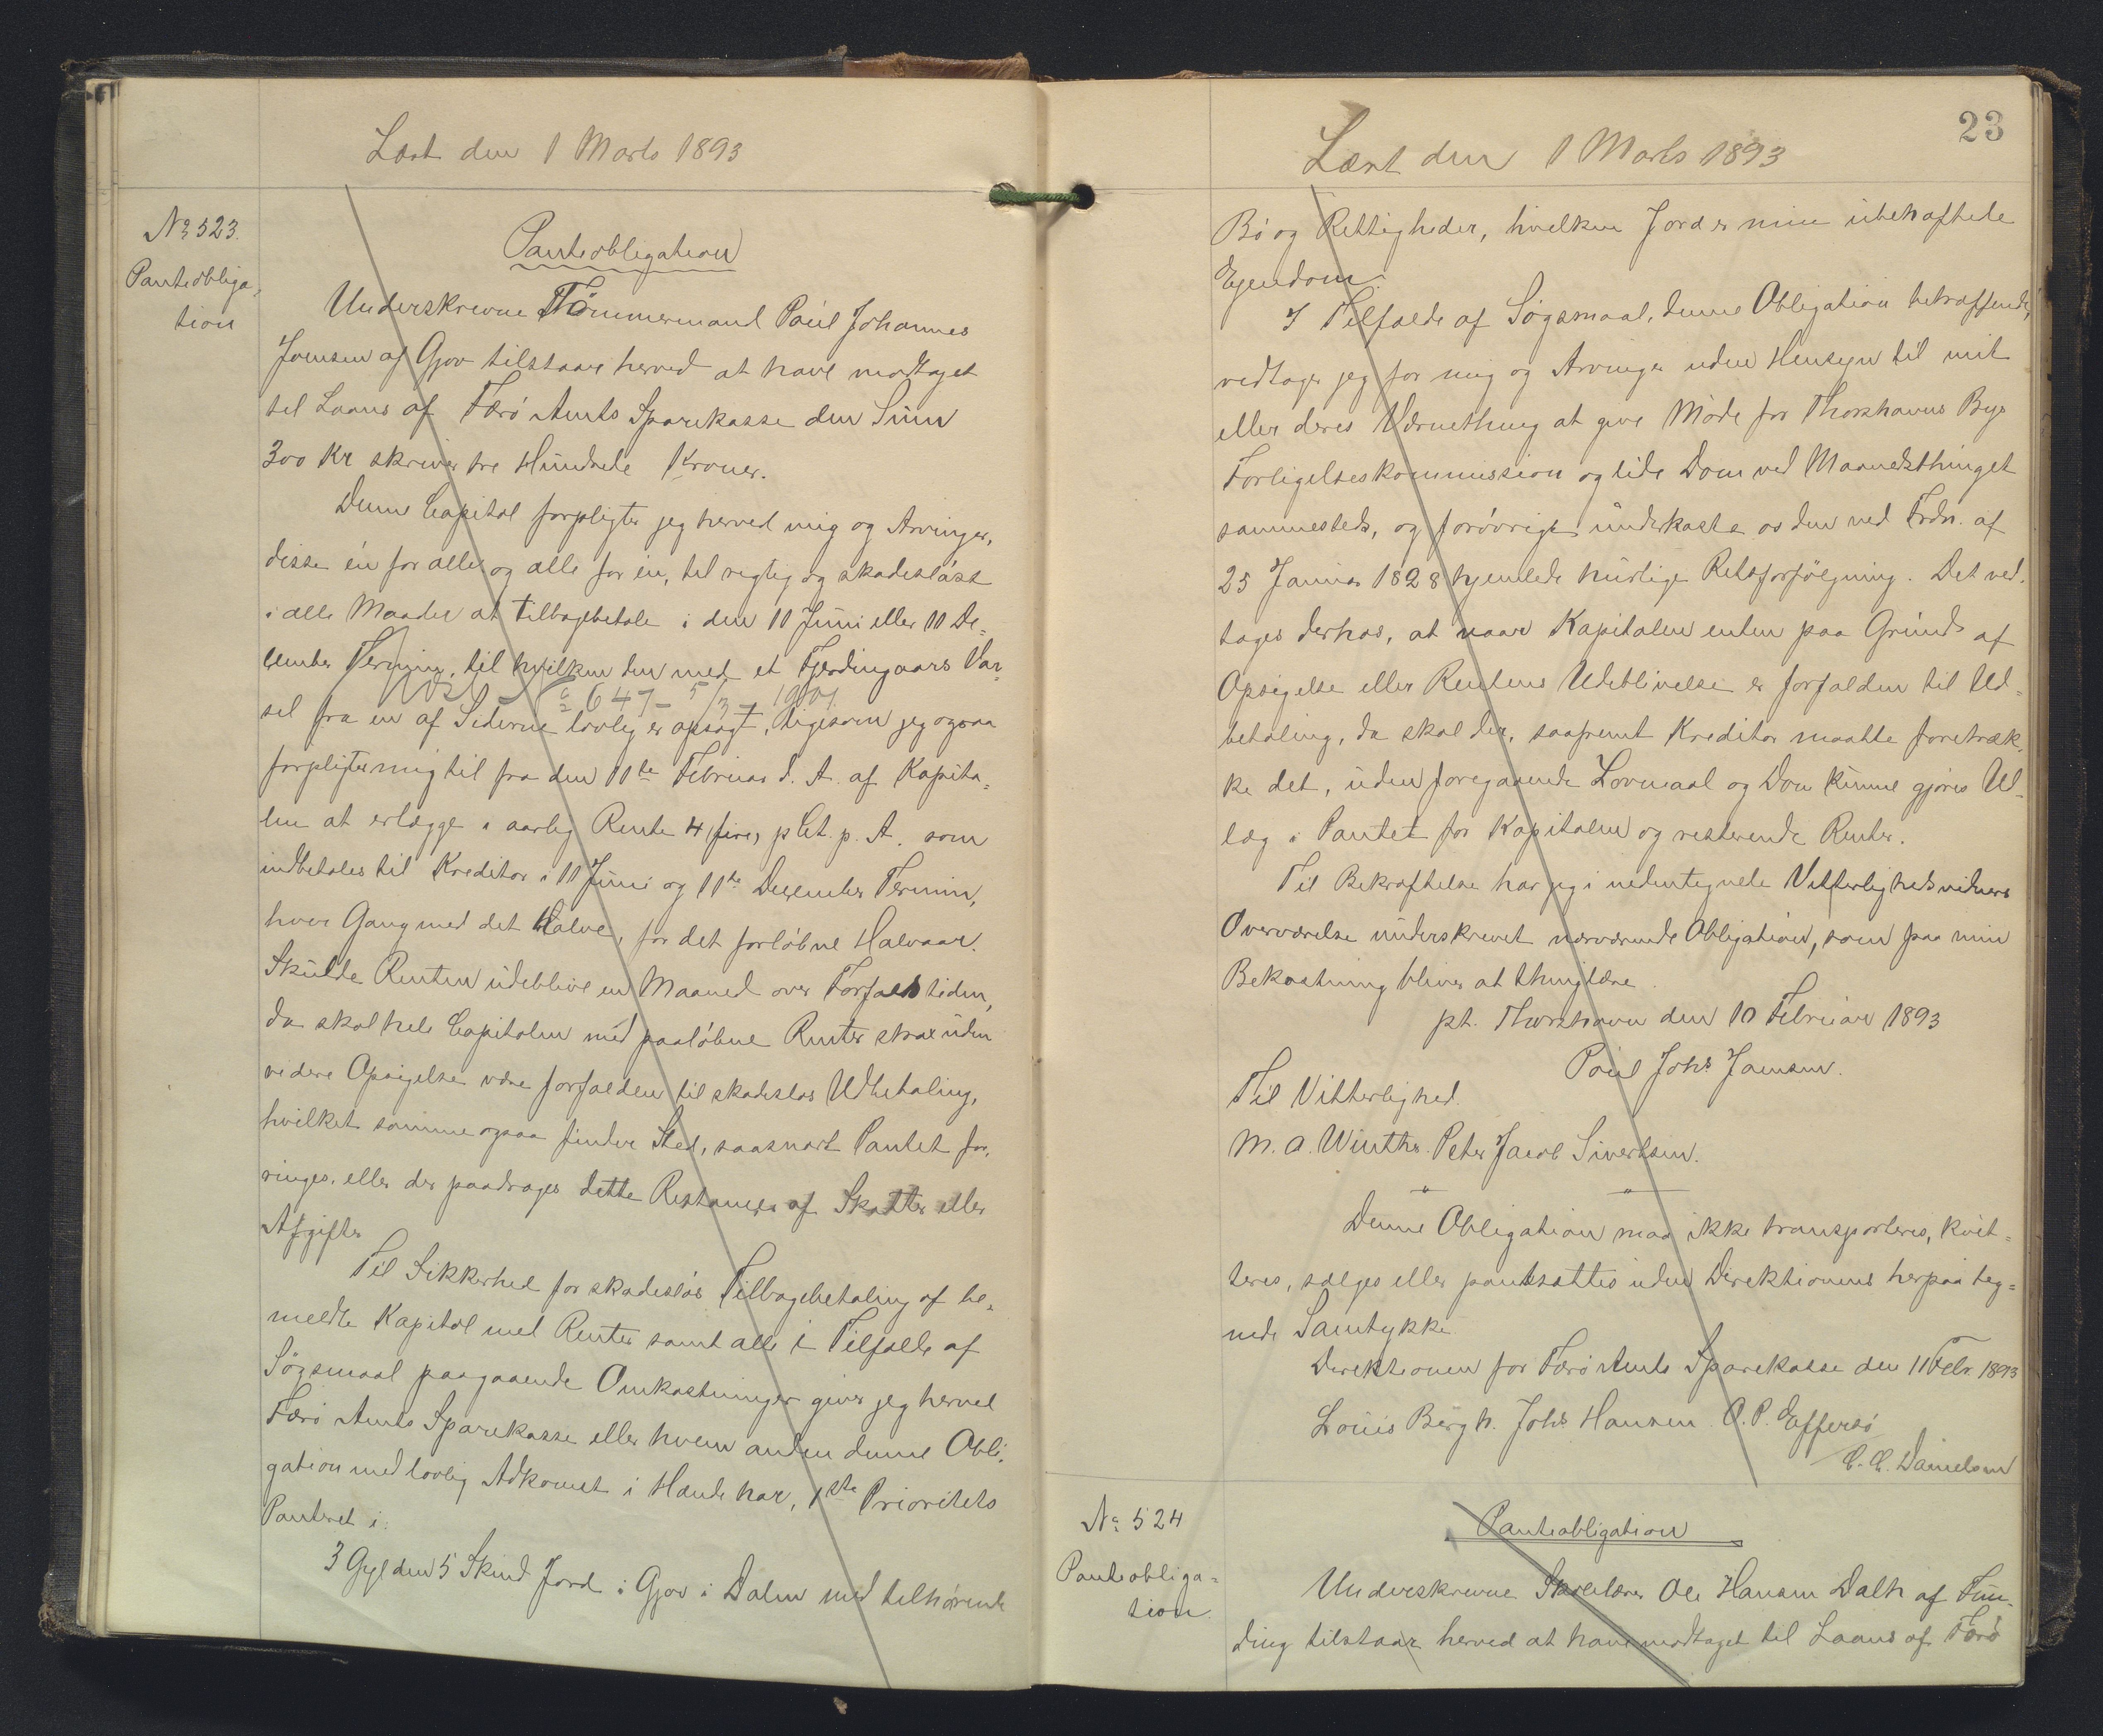 Læst den 1 Marts 1893
No 523.
Panteobliga-
tion
Panteobligation
Underskrevne Tømmermand Poul Johannes
Joensen af Gjov tilstaar herved at have modtaget
til Laans af Færö Amts Sparekasse den Sum
300 Kr skriver tre Hundrede Kroner.
Denne Capital forpligter jeg herved mig og Arvinger,
disse én for alle og alle for én, til rigtig og skadesløst
i alle Maader at tilbagebetale i den 11 Juni eller 11 De-
cember Termin, til hvilken den med et Fjerdingaars Var-
No 647 - 5/3 - 1901
sel fra en af Siderne lovlig er opsagt, ligesom jeg ogsaa
forpligter mig til fra den 11te Februar d. A. af Kapita-
len at erlægge i aarlig Rente 4 (fire) pCt. p. A. som
indbetales til Kreditor i 11 Juni og 11te December Termin,
hver Gang med det Halve, for det forløbne Halvaar.
Skulde Renten udeblive en Maaned over Forfaldstiden,
da skal hele Capitalen med paaløbne Renter strax uden
videre Opsigelse være forfalden til skadesløs Udbetaling,
hvilket samme ogsaa finder Sted, saasnart Pantet for-
ringes, eller der paadrages dette Restancer af Skatter eller
Afgifter
Til Sikkerhed for skadesløs Tilbagebetaling af be-
meldte Kapital med Renter samt alle i Tilfælde af
Søgsmaal paagaaende Omkostninger giver jeg herved
Færö Amts Sparekasse eller hvem anden denne Obli-
gation med lovlig Adkomst i Hænde har, 1ste Prioritets
Panteret i:
3 Gylden 5 Skind Jord i Gjov i Dalen med tilhørende
23
Læst den 1 Marts 1893
Bö og Rettigheder, hvilken Jord er min ubehæftede
Ejendom.
I Tilfælde af Søgsmaal, denne Obligation betræffende,
vedtager jeg for mig og Arvinger uden Hensyn til mit
eller deres Værnething at give Møde for Thorshavns Bys
Forligelseskommission og lide Dom ved Maanedsthinget
sammesteds, og forøvrigt underkaste os den ved Frdn. af
25 Januar 1828 hjemlede hurtige Retsforfølgning. Det ved-
tages derhos, at naar Kapitalen enten paa Grund af
Opsigelse eller Rentens Udeblivelse er forfalden til Ud-
betaling, da skal der, saafremt Kreditor maatte foretræk-
ke det, uden foregaaende Lovmaal og Dom kunne gjøres Ud-
læg i Pantet for Kapitalen og resterende Renter.
Til Bekræftelse har jeg i nedentegnede Vitterlighedsvidners
Overværelse underskrevet nærværende Obligation, som paa min
Bekostning bliver at thinglæse.
pt. Thorshavn den 10 Februar 1893
Poul Johs Joensen.
Til Vitterlighed.
M. A. Winther. Peter Jacob Sivertsen.
Denne Obligation maa ikke transporteres, kvit-
teres, sælges eller pantsættes uden Direktionens herpaa teg-
nede Samtykke.
Direktionen for Færö Amts Sparekasse den 11 Febr. 1893
Louis Bergh. Johs Hansen. O. P. Effersö
C. C. Danielsen
No 524
Panteobliga-
tion.
Panteobligation
Underskrevne Skolelærer Ole Hansen Dalh af Fun-
ding tilstaar herved at have modtaget til Laans af Færö